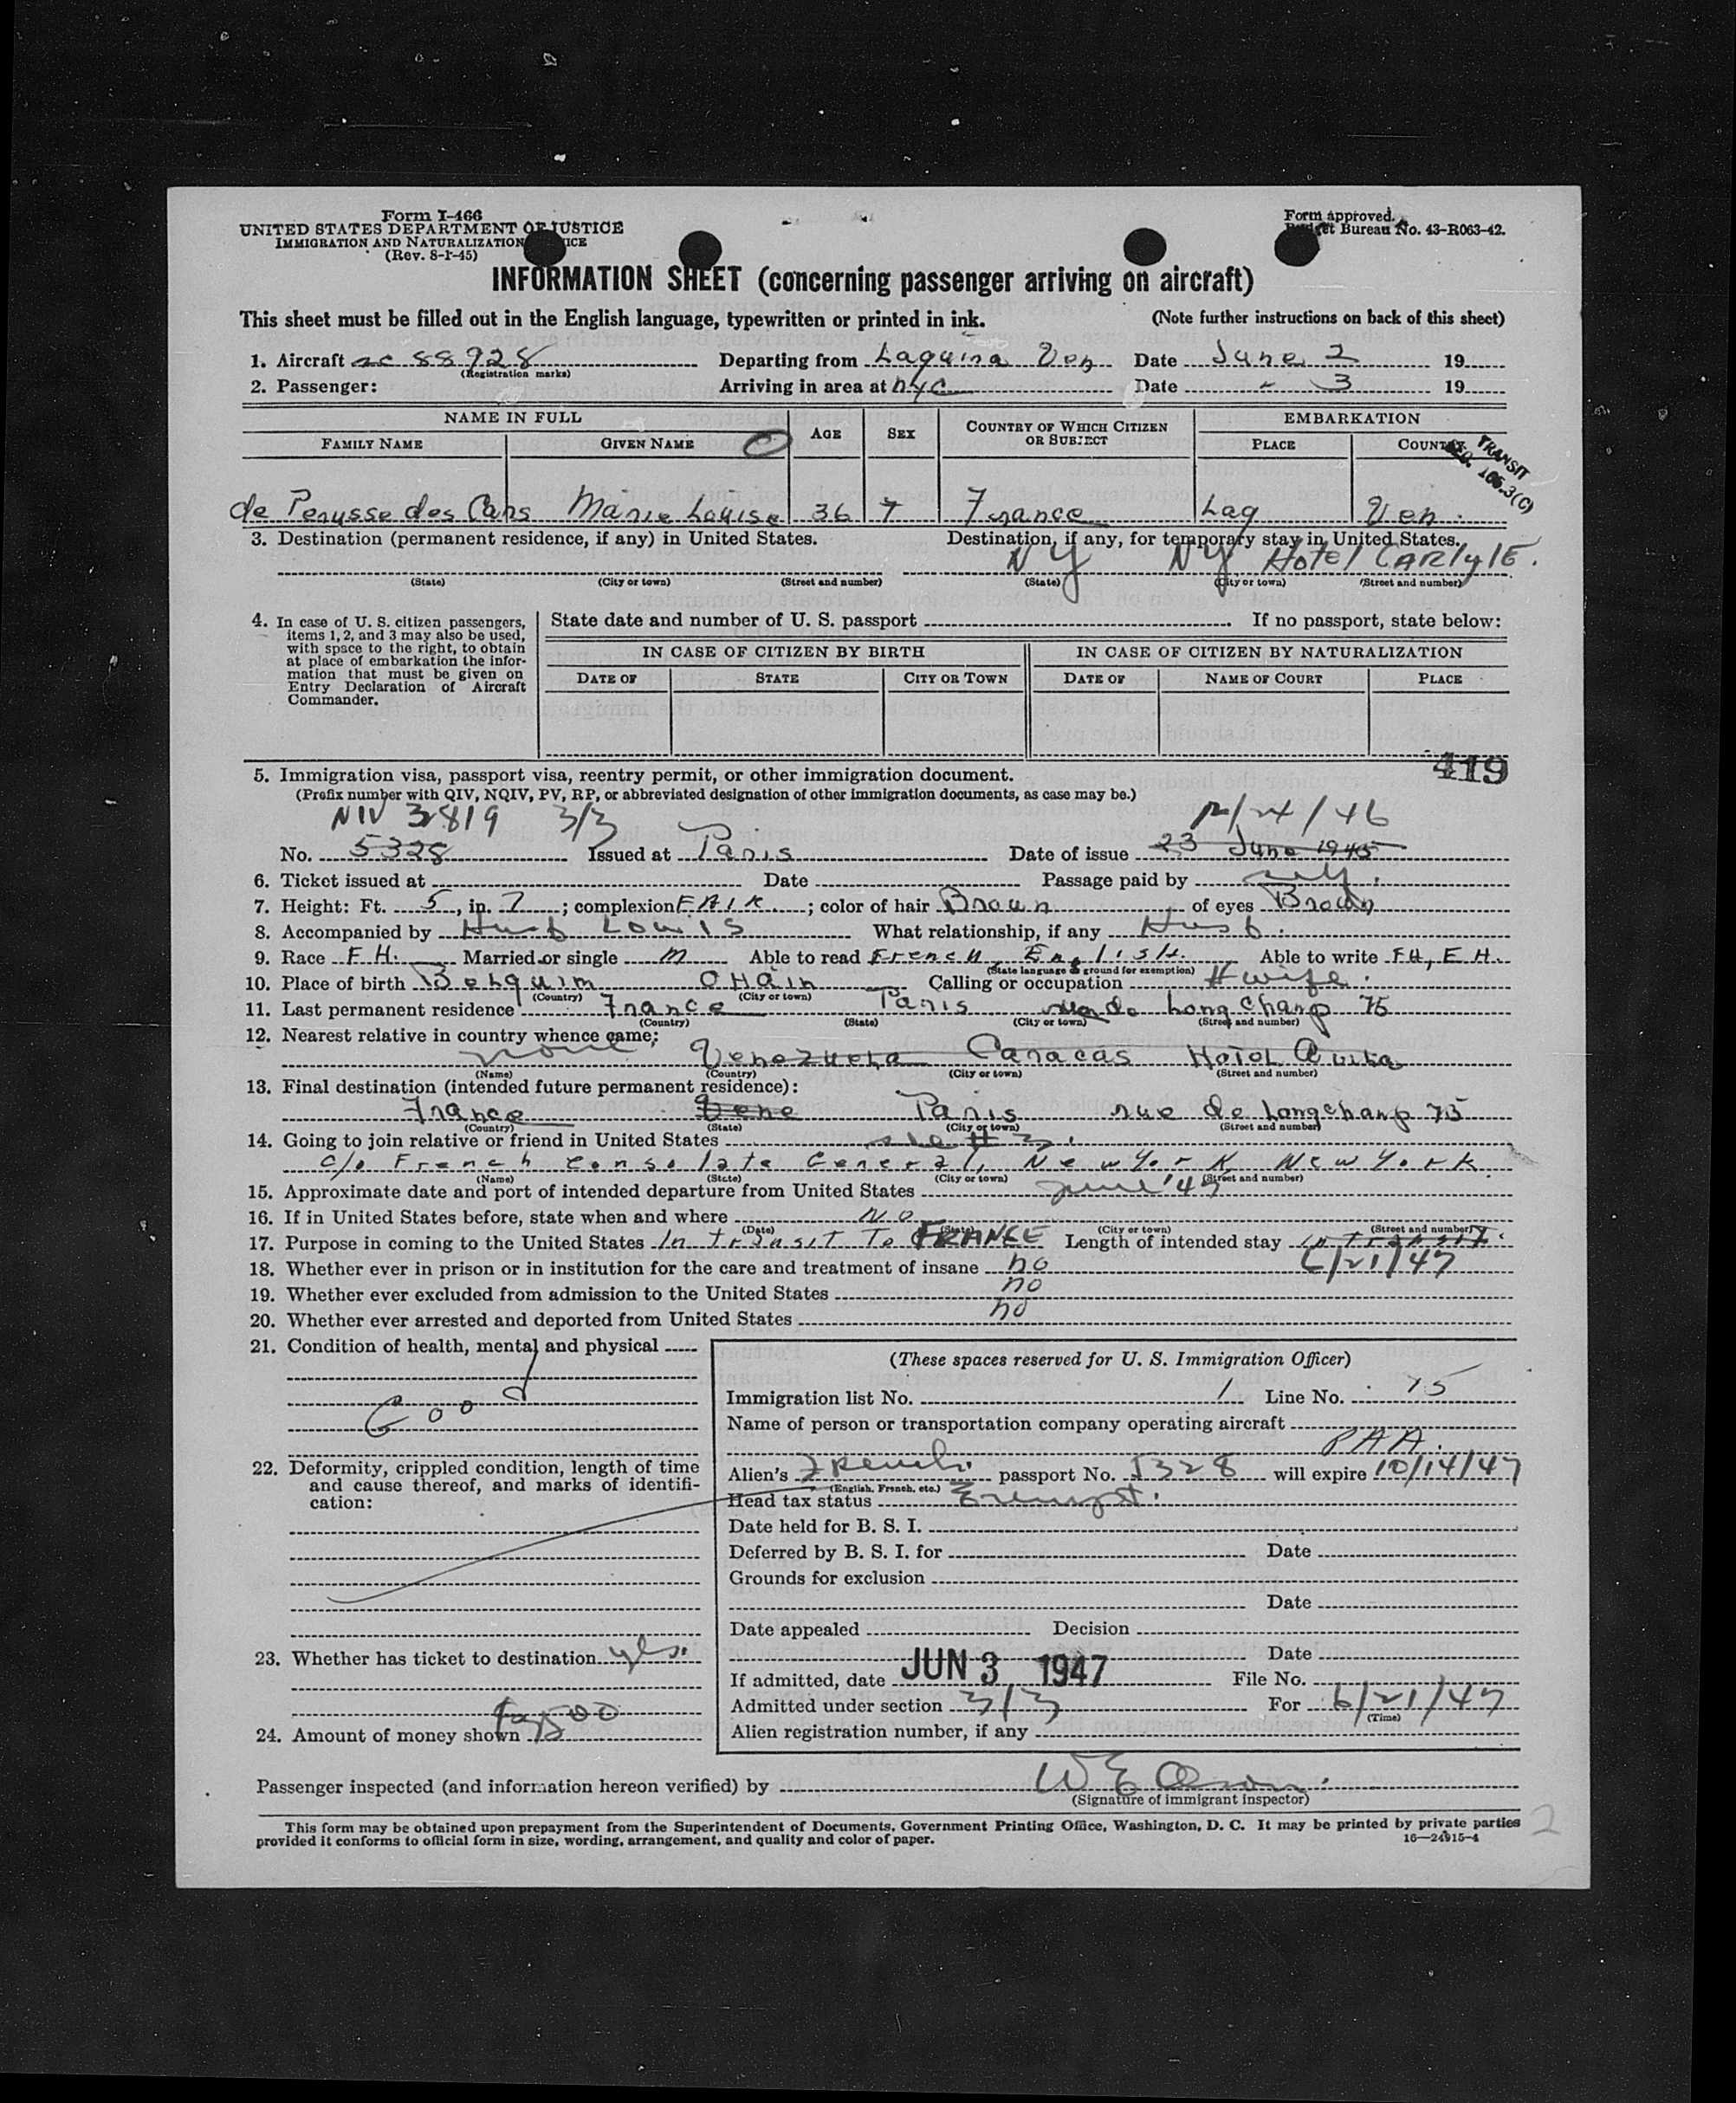 Form I-466
UNITED STATES DEPARTMENT OF JUSTICE
IMMIGRATION AND NATURALIZATION SERVICE
(Rev. 8-1-45)
Form approved.
Budget Bureau No. 43-R063-42.
INFORMATION SHEET (concerning passenger arriving on aircraft)
This sheet must be filled out in the English language, typewritten or printed in ink. (Note further instructions on back of this sheet)
1. Aircraft nc 88928 Departing from Laguira Ven Date June 2 19
(Registration marks)
2. Passenger: Arriving in area at nyc Date - 3 19
NAME IN FULL AGE SEX COUNTRY OF WHICH CITIZEN OR SUBJECT EMBARKATION
FAMILY NAME GIVEN NAME PLACE COUNTRY
TRANSIT
SEC. 165.3(C)
de Perusse des Cars Marie Louise 36 F France Lag Ven.
3. Destination (permanent residence, if any) in United States. Destination, if any, for temporary stay in United States.
NY NY Hotel CARLYLE.
(State) (City or town) (Street and number) (State) (City or town) (Street and number)
4. In case of U. S. citizen passengers, items 1, 2, and 3 may also be used, with space to the right, to obtain at place of embarkation the information that must be given on Entry Declaration of Aircraft Commander.
State date and number of U. S. passport If no passport, state below:
IN CASE OF CITIZEN BY BIRTH IN CASE OF CITIZEN BY NATURALIZATION
DATE OF STATE CITY OR TOWN DATE OF NAME OF COURT PLACE
419
5. Immigration visa, passport visa, reentry permit, or other immigration document.
(Prefix number with QIV, NQIV, PV, RP, or abbreviated designation of other immigration documents, as case may be.)
NIV 3819 3/3 12/24/46
No. 5328 Issued at Paris Date of issue 23 June 1945
6. Ticket issued at Date Passage paid by self.
7. Height: Ft. 5, in. 7; complexion FAIR; color of hair Brown of eyes Brown
8. Accompanied by Husb Louis What relationship, if any Husb.
9. Race FH. Married or single M Able to read French, English. Able to write FH, EH.
(State language or ground for exemption)
10. Place of birth Belguim OHain Calling or occupation Hwife.
(Country) (City or town)
11. Last permanent residence France Paris rue de Longchamp 75
(Country) (State) (City or town) (Street and number)
12. Nearest relative in country whence came:
none, Venezuela Caracas Hotel Avila
(Name) (Country) (City or town) (Street and number)
13. Final destination (intended future permanent residence):
France Vene Paris rue de Longchamp 75
(Country) (State) (City or town) (Street and number)
14. Going to join relative or friend in United States see # 3.
c/o French Consolate General, New York New York
(Name) (State) (City or town) (Street and number)
15. Approximate date and port of intended departure from United States June '47
16. If in United States before, state when and where No
(Date) (State) (City or town) (Street and number)
17. Purpose in coming to the United States In transit To FRANCE Length of intended stay in transit.
6/21/47
18. Whether ever in prison or in institution for the care and treatment of insane no
19. Whether ever excluded from admission to the United States no
20. Whether ever arrested and deported from United States no
21. Condition of health, mental and physical
Good
22. Deformity, crippled condition, length of time and cause thereof, and marks of identification:
23. Whether has ticket to destination yes.
24. Amount of money shown
(These spaces reserved for U. S. Immigration Officer)
Immigration list No. 1 Line No. 15
Name of person or transportation company operating aircraft
PAA.
Alien's French passport No. 5328 will expire 10/14/47
(English, French, etc.)
Head tax status Exempt.
Date held for B. S. I.
Deferred by B. S. I. for Date
Grounds for exclusion
Date
Date appealed Decision
Date
If admitted, date JUN 3 1947 File No.
Admitted under section 3/3 For 6/21/47
(Time)
Alien registration number, if any
Passenger inspected (and information hereon verified) by W E Olson.
(Signature of immigrant inspector)
This form may be obtained upon prepayment from the Superintendent of Documents, Government Printing Office, Washington, D. C. It may be printed by private parties
provided it conforms to official form in size, wording, arrangement, and quality and color of paper. 16—24915-4
2